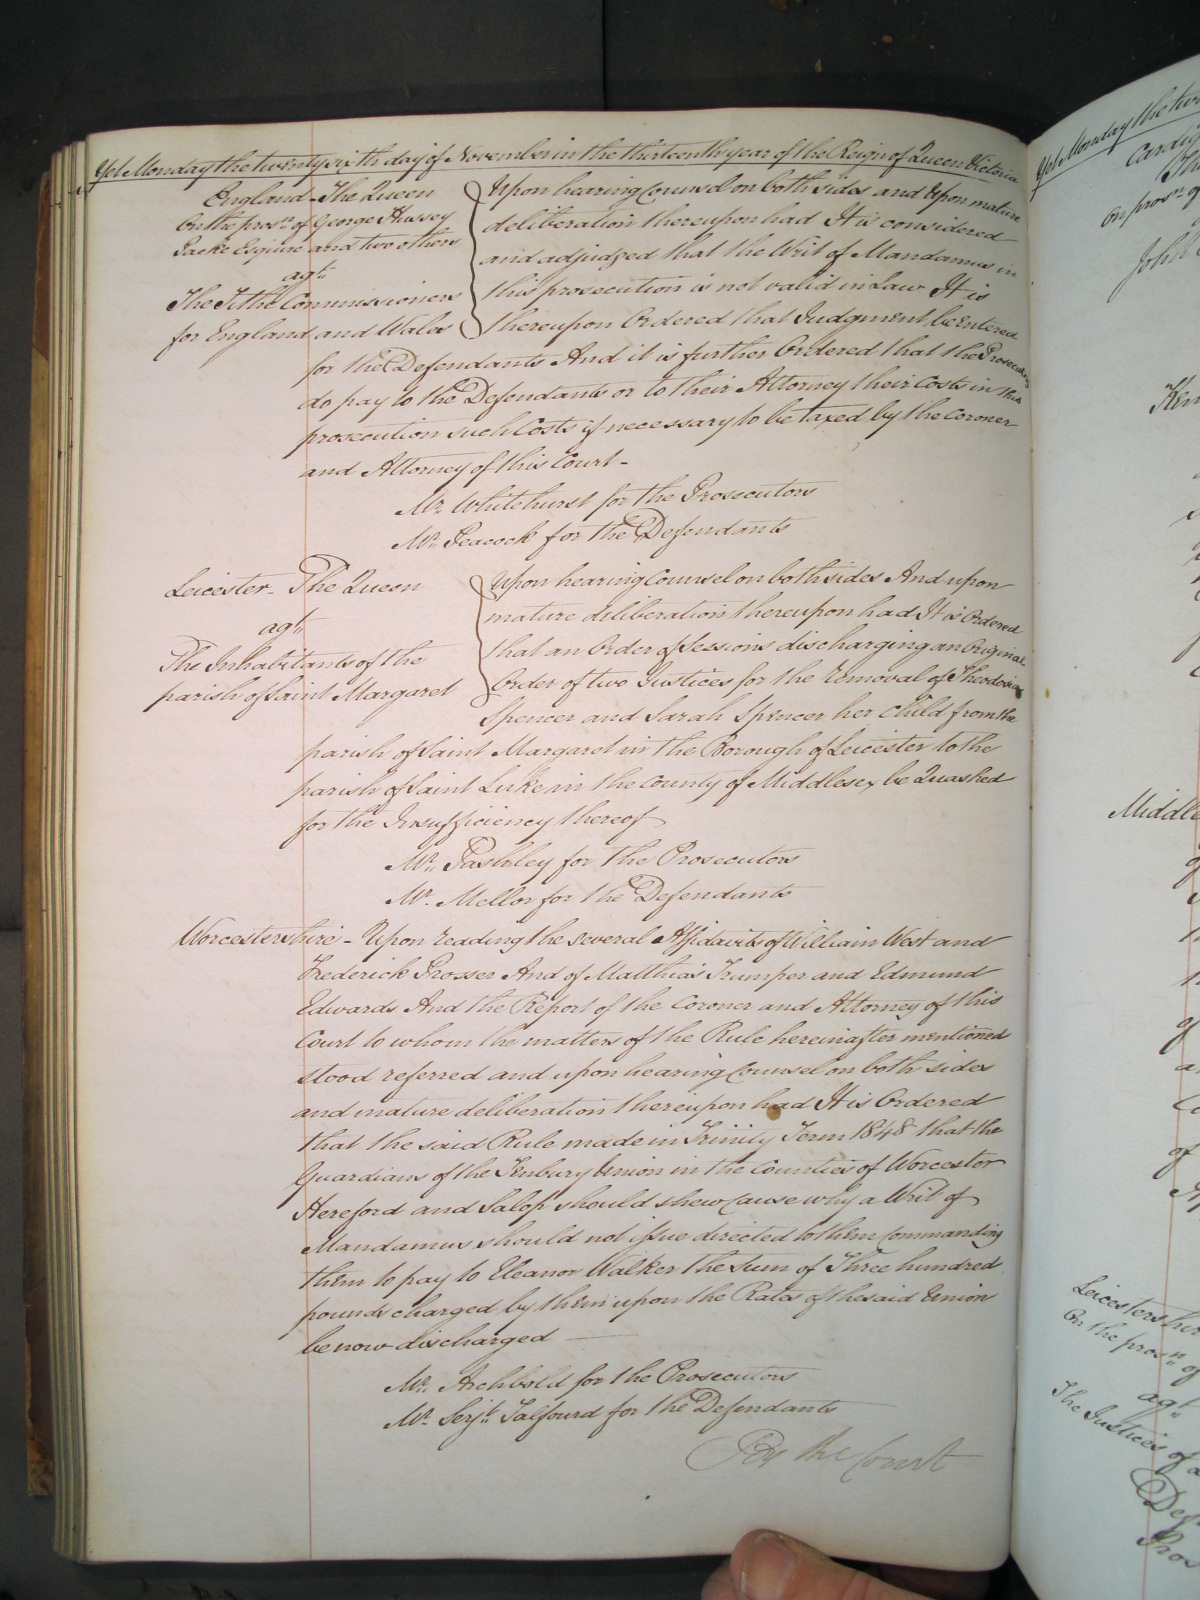 Yet Monday the twenty sixth day of November in the thirteenth year of the Reign of Queen Victoria
England - The Queen
On the prosn. of George Hussey
Packe Esquire and two others
agt.
The Tithe Commissioners
for England and Wales
Upon hearing Counsel on both sides and upon mature
deliberation thereupon had It is considered
and adjudged that the Writ of Mandamus in
this prosecution is not valid in Law It is
thereupon Ordered that Judgment be Entered
for the Defendants And it is further Ordered that the Prosecutors
do pay to the Defendants or to their Attorney their Costs in this
prosecution such Costs if necessary to be taxed by the Coroner
and Attorney of this Court -
Mr. Whitehurst for the Prosecutors
Mr. Peacock for the Defendants
Leicester - The Queen
agt.
The Inhabitants of the
parish of Saint Margaret
Upon hearing Counsel on both sides And upon
mature deliberation thereupon had It is Ordered
that an Order of Sessions discharging an Original
Order of two Justices for the Removal of Theodosia
Spencer and Sarah Spencer her child from the
parish of Saint Margaret in the Borough of Leicester to the
parish of Saint Luke in the County of Middlesex be Quashed
for the Insufficiency thereof
Mr. Pashley for the Prosecutors
Mr. Mellor for the Defendants
Worcestershire - Upon reading the several Affidavits of William West and
Frederick Prosser And of Matthias Trumper and Edmund
Edwards And the Report of the Coroner and Attorney of this
Court to whom the matters of the Rule hereinafter mentioned
stood referred and upon hearing Counsel on both sides
and mature deliberation thereupon had It is Ordered
that the said Rule made in Trinity Term 1848 that the
Guardians of the Tenbury Union in the Counties of Worcester
Hereford and Salop should shew cause why a Writ of
Mandamus should not issue directed to them commanding
them to pay to Eleanor Walker the Sum of Three hundred
pounds charged by them upon the Rates of the said Union
be now discharged
Mr. Archbold for the Prosecutors
Mr. Serjt. Talfourd for the Defendants
By the Court
Yet Monday the
On prosn.
John
Leicestershire
On the prosn. of
agt.
The Justices of